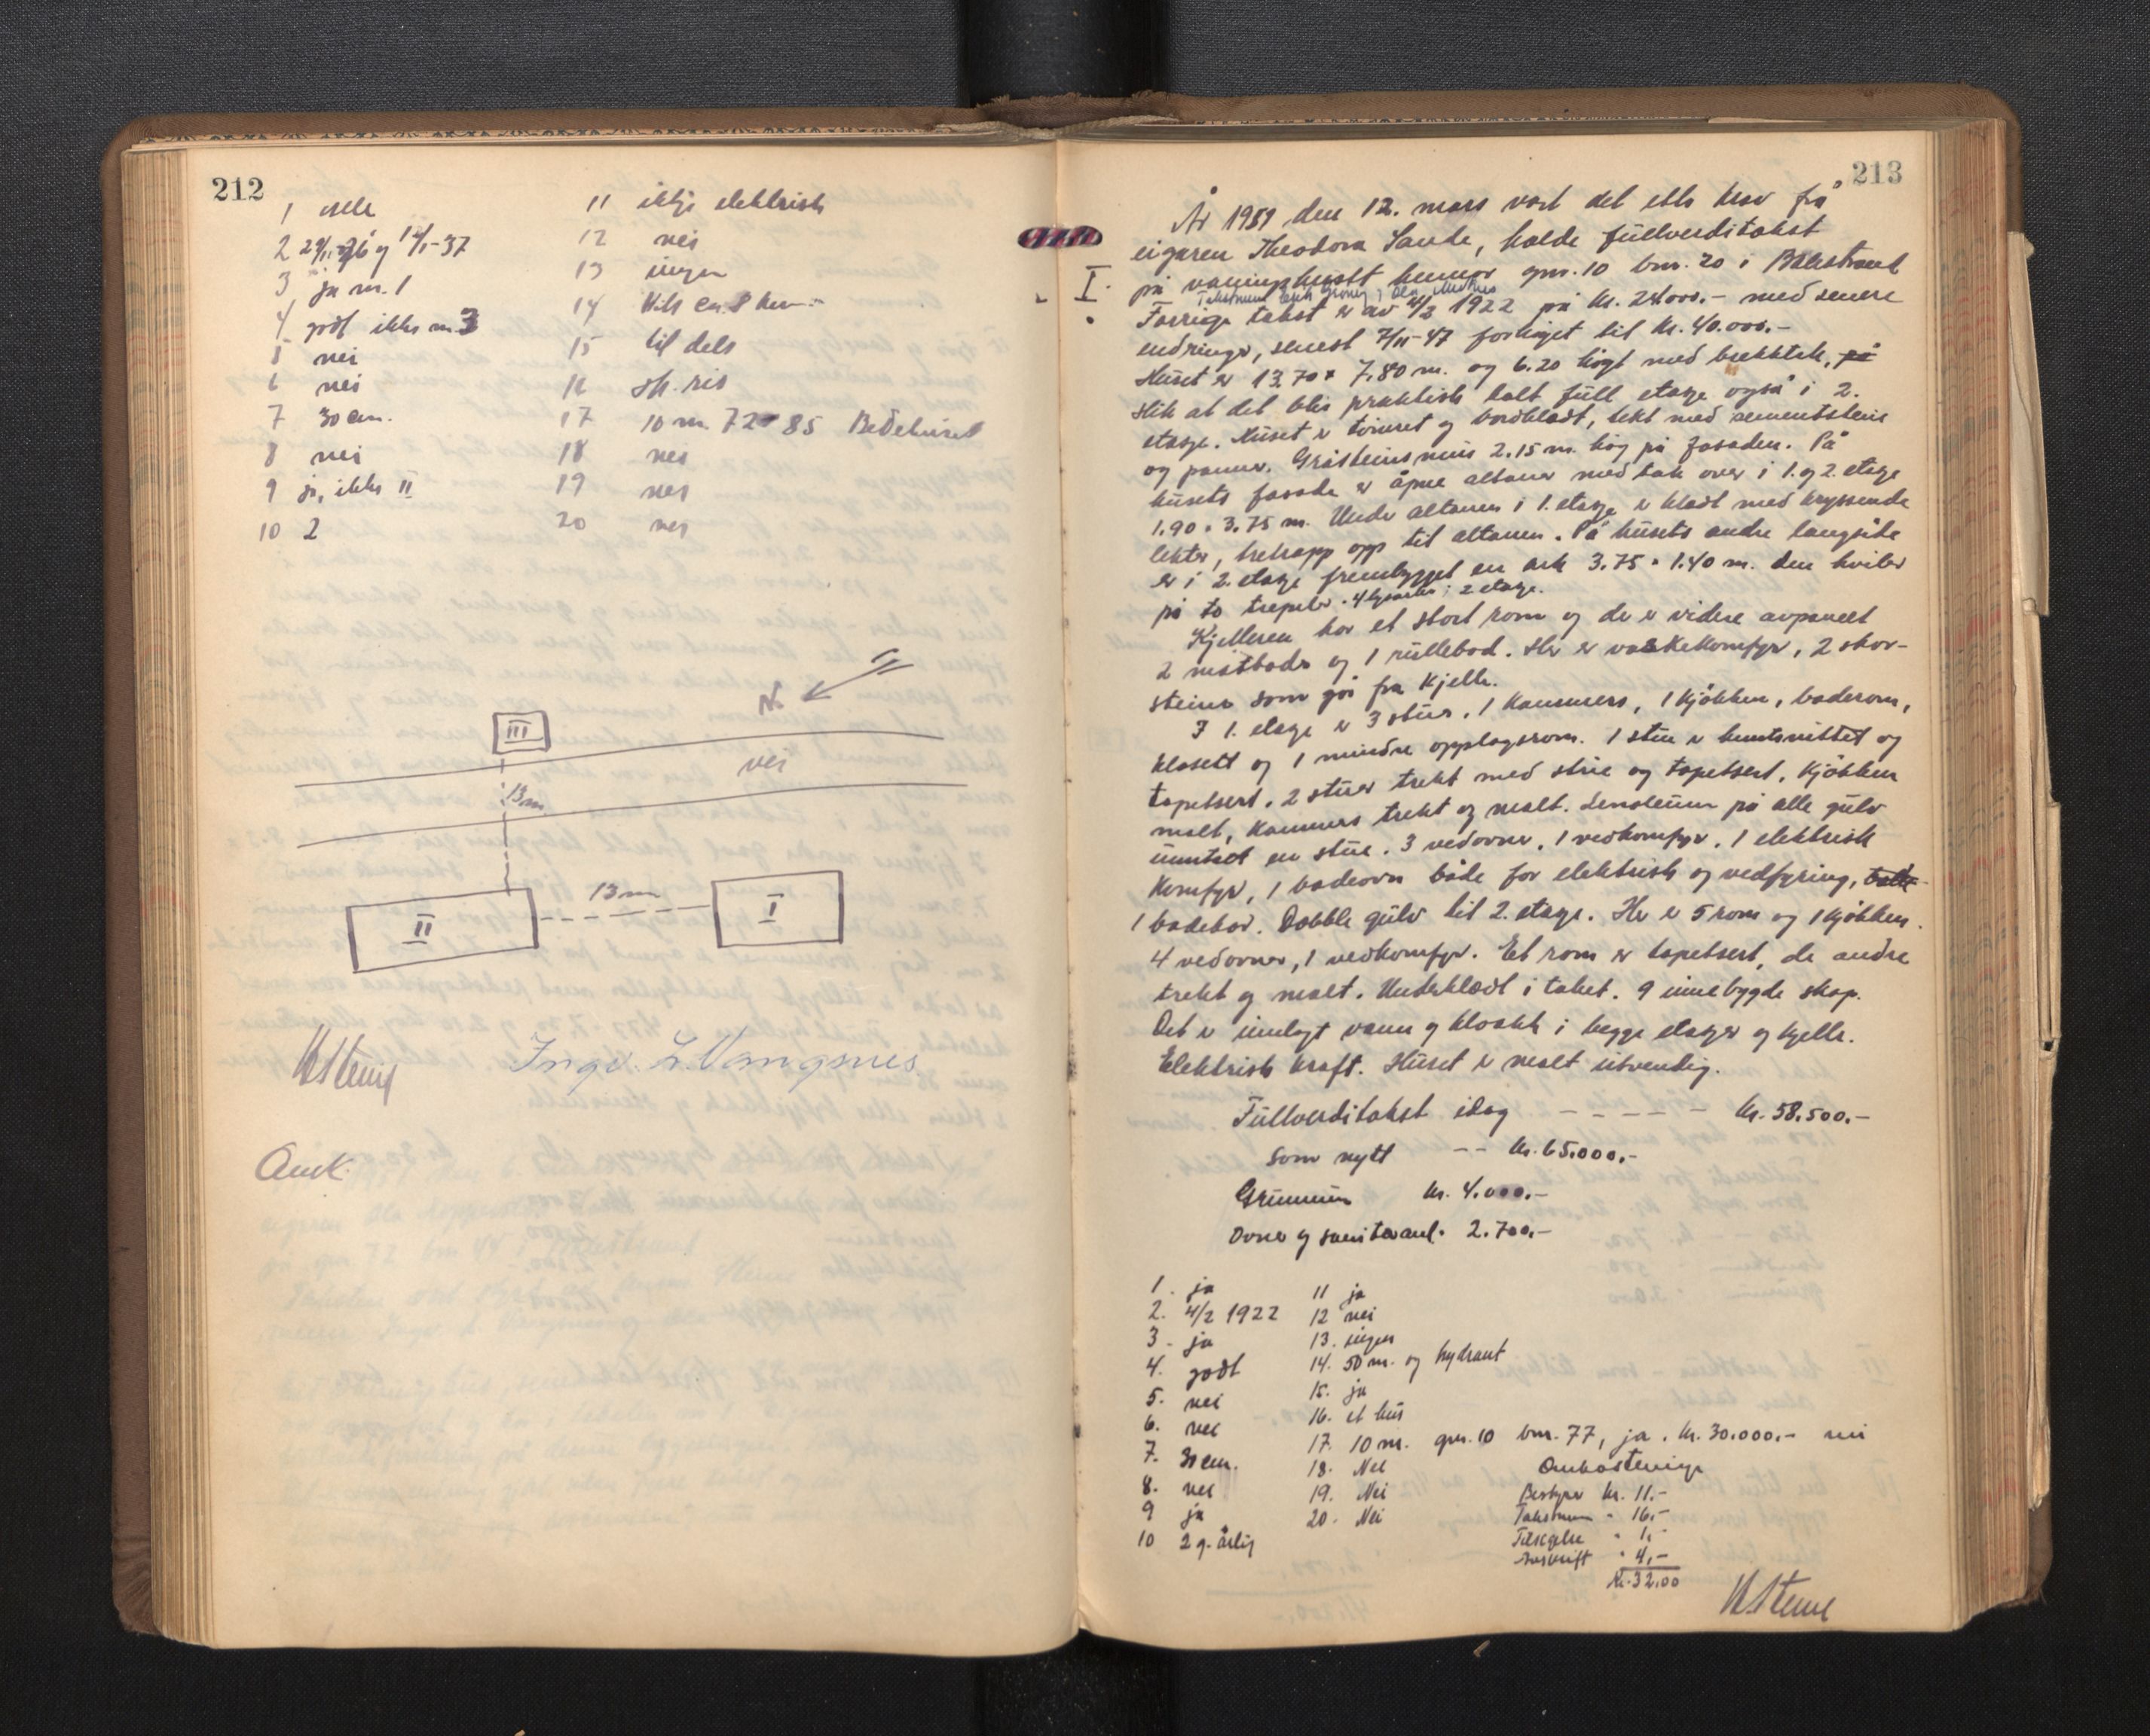 212
1 eslle
2 29/11-26 og 14/1-37
3 ja m. 1
4 godt ikke m 3
5 nei
6 nei
7 30 cm.
8 nei
9 ja, ikke II
10 2
11 ikkje elektrisk
12 nei
13 ingen
14 Vik ca. 8 km -
15 til dels
16 sp. ris
17 10 m. 72-85 Bedehuset
18 nei
19 nei
20 nei
N
III
vei
13 m
13 m
II
I
Ingv. L. Vangsnes
Omk.
213
År 1951 den 12. mars vart det etter krav frå
eigaren Theodora Sande, halde fullverditakst
I. på våningshusett hennar gnr. 10 bnr. 20 i Balestrand
Takstmenn
Forrige takst er av 4/2 1922 på kr. 24.000.- med senere
endringer, senest 7/11-47 forhøyet til kr. 40.000.-
Huset er 13.70 x 7.80 m. og 6.20 høgt med brekktak, på
slik at det blir praktisk talt full etasje også i 2.
etasje. Huset er tømret og bordkledt, tekt med sementsteine
og panner. Gråsteinsmur 2.15 m. høg på fasaden. På
husets fasade er åpne altaner med tak over i 1. og 2. etasje
1.90 x 3.75 m. Under altanen i 1. etasje er kledt med kryssende
lekter, tretrapp opp til altanen. På husets andre langside
er i 2. etasje frembygget en ark 3.75 x 1.40 m. den hviler
på to trepeler. 4 i 2 etasje.
Kjelleren har et stort rom og de er videre avpanelt
2 matboder og 1 rullebod. Her er vaskekomfyr, 2 skor-
steiner som går fra kjeller.
I 1. etasje er 3 stuer, 1 kammers, 1 kjøkken, baderom,
klosett og 1 mindre opplagsrom. 1 stue er huntonittet og
tapetsert. 2 stuer trekt med strie og tapetsert, kjøkken
malt, kammers trekt og malt. Linoleum på alle gulv
unntatt en stue. 3 vedovner, 1 vedkomfyr, 1 elektrisk
komfyr, 1 badeovn både for elektrisk og vedfyring,
1 badekar. Dobble gulv til 2. etasje. Her er 5 rom og 1 kjøkken.
4 vedovner, 1 vedkomfyr. Et rom er tapetsert, de andre
trekt og malt. Underkledt i taket. 9 innebygde skap.
Det er innlagt vann og kloakk i begge etasjer og kjeller.
Elektrisk kraft. Huset er malt utvendig.
Fullverditakst idag - - - - - kr. 58.500.-
Som nytt -- kr. 65.000.-
Grunnmur kr. 4.000.-
Ovner og sanitæranl. 2.700.-
1. ja
2. 4/2 1922
3. ja
4. godt
5. nei
6. nei
7. 30 cm.
8. nei
9 ja
10 2 g. årlig
11 ja
12 nei
13. ingen
14. 50 m. og hydrant
15. ja
16. et hus
17. 10 m. gnr. 10 bnr. 77, ja. kr. 30.000.- nei
18. Nei
19. Nei
20. Nei
Omkostninger
Bestyrer kr. 11.-
Takstmenn " 16,-
Tilsigelse " 1,-
Avskrift " 4,-
Kr. 32.00